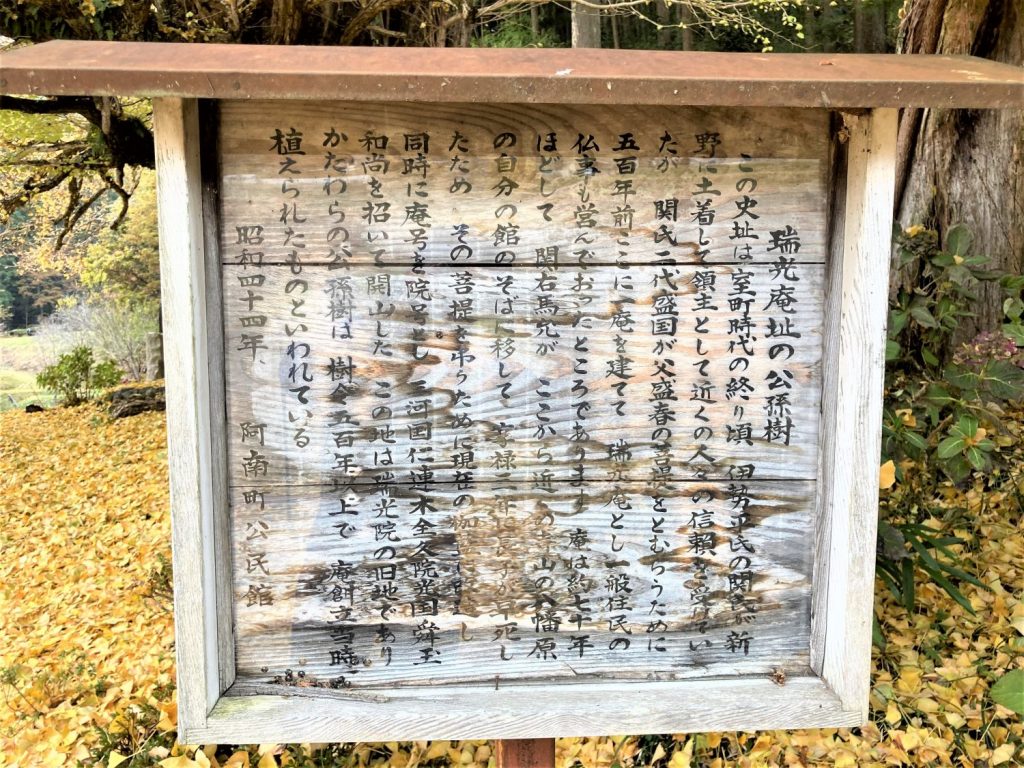 瑞光庵址の公孫樹
この史址は室町時代の終り頃 伊勢平氏の関氏が新
野に土着して領主として近くの人々の信頼を受けてい
たが 関氏二代盛国が父盛春の菩提をとむらうために
五百年前ここに一庵を建てて 瑞光庵とし一般住民の
仏事も営んでおったところであります 庵は約七十年
ほどして 関右馬允が ここから近くの 山の八幡原
の自分の館のそばに移して 享禄二年 長子が早死し
たため その菩提を弔うために現在の
同時に庵号を院号とし 三河国仁連木全久院光国舜玉
和尚を招いて開山した この地は瑞光院の旧地であり
かたわらの公孫樹は 樹令五百年以上で 庵創立当時
植えられたものといわれている
昭和四十四年 阿南町公民館